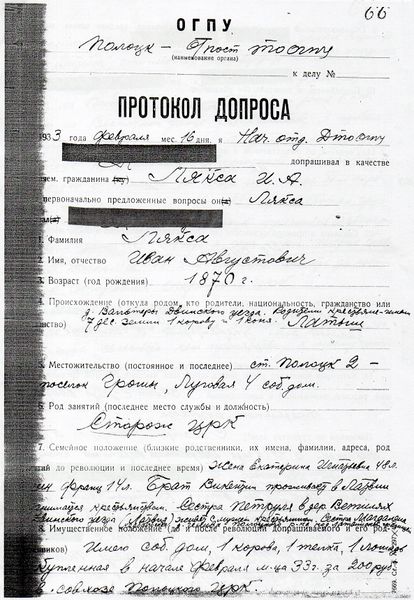 66
ОГПУ
Полоцк - Пост
(наименование органа)
к делу №
ПРОТОКОЛ ДОПРОСА
1933 года февраля мес. 16 дня, я Нач. отд.
допрашивал в качестве
гражданина Лякса И. А.
первоначально предложенные вопросы он Лякса
1. Фамилия Лякса
2. Имя, отчество Иван Августович
3. Возраст (год рождения) 1870 г.
4. Происхождение (откуда родом, кто родители, национальность, гражданство или
д. Двинского уезда. Родители крестьяне-
7 дес земли 1 корову и 1 коня. Латыш
5. Местожительство (постоянное и последнее) ст. Полоцк 2 -
поселок Грошы, Луговая 4 соб. дом.
6. Род занятий (последнее место службы и должность)
Сторож ЦРК
7. Семейное положение (близкие родственники, их имена, фамилии, адреса, род
до революции и последнее время) Жена Екатерина 48 л.
Франц 14 л. Брат Викентий проживает в Латвии
крестьянством. Сестра Петруня в дер
уезда (Латвия) живет с мужем Сестра Магдалена
8. Имущественное положение (до и после революции допрашиваемого и его род-
ников) Имею соб. дом, 1 корова, 1 телка, 1 лошадь
купленная в начале февраля м-ца 33 г. за 200 руб
в совхозе Полоцкого ЦРК.